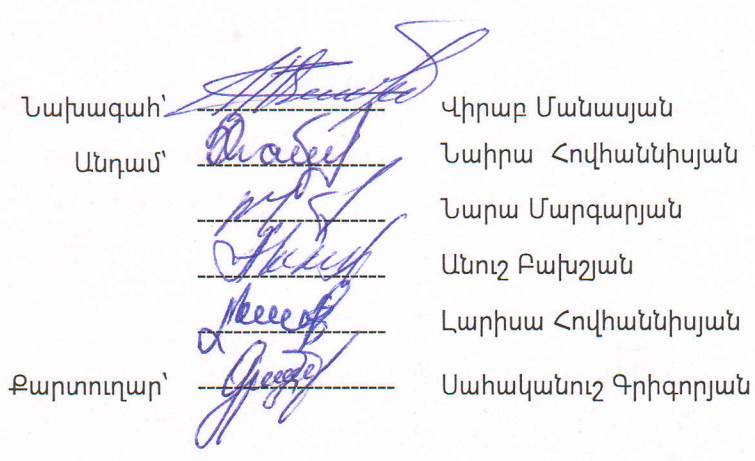 Նախագահ՝ ------------------- Վիրաբ Մանասյան
Անդամ՝ ------------------- Նաիրա Հովհաննիսյան
------------------- Նարա Մարգարյան
------------------- Անուշ Բախշյան
------------------- Լարիսա Հովհաննիսյան
Քարտուղար՝ -------------------- Սահականուշ Գրիգորյան